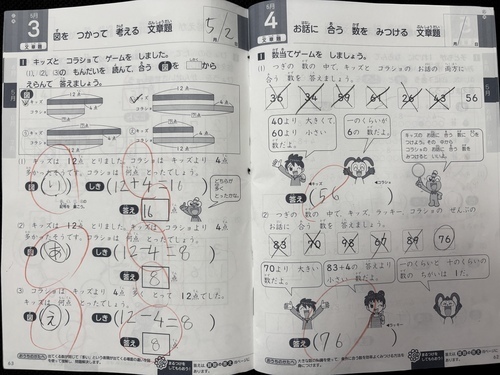 5月
3
文章題
図を つかって 考える 文章題
5/2
1 キッズと コラショで ゲームを しました。
(1)、(2)、(3)の もんだいを 読んで、合う 図を □から
えらんで 答えましょう。
図
(1) キッズは 12点 とりました。コラショは キッズより 4点
多かったそうです。コラショは 何点 とったでしょう。
図 (い) しき (12+4=16)
答え 16 点
どちらが
多く
とったかな。
(2) キッズは 12点 とりました。キッズは コラショより 4点
多かったそうです。コラショは 何点 とったでしょう。
図 (あ) しき (12-4=8)
答え 8 点
(3) コラショは キッズより 4点 多く とって 12点でした。
キッズは 何点 とったでしょう。
図 (え) しき (12-4=8)
答え 8 点
63
5月
4
文章題
お話に 合う 数を みつける 文章題
1 数当てゲームを しましょう。
(1) つぎの 数の 中で、キッズと コラショの お話の 両方に
合う 数を 答えましょう。
36 34 59 61 26 43 56
40より 大きくて
60より 小さい
数だよ。
一のくらいが
6の 数だよ。
キッズの
お話に 合う 数に
つけよう。その 中から
コラショの お話に 合う 数を
みつけると いいよ。
キッズ
コラショ
(56)
(2) つぎの 数の 中で、キッズ、ラッキー、コラショの ぜんぶの
お話に 合う 数を 答えましょう。
83 70 98 67 89 76
70より 大きい
数だよ。
83+4の 答えより
小さい 数だよ。
一のくらいと 十のくらいの
数の ちがいは 1だ。
ラッキー
(76)